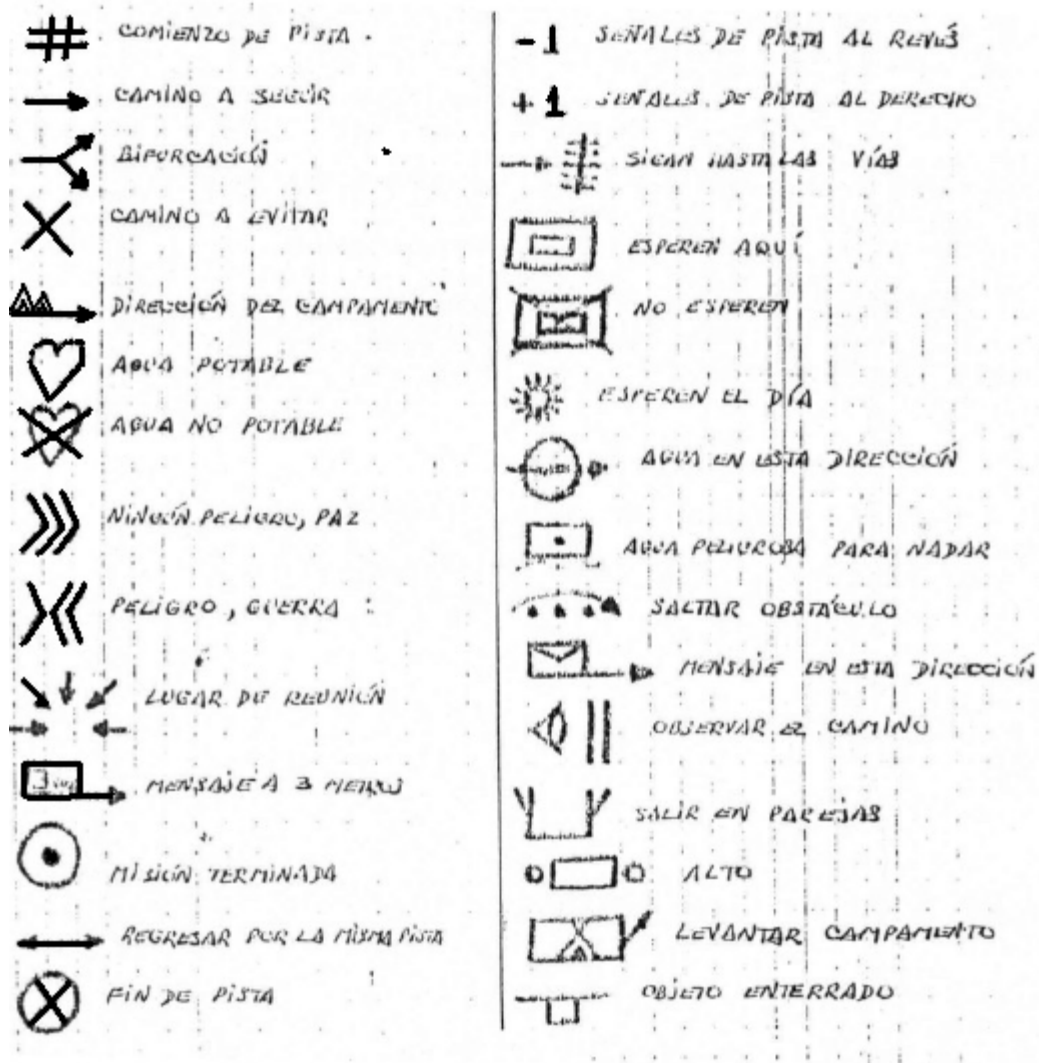 COMIENZO DE PISTA.
CAMINO A SEGUIR
BIFURCACIÓN
CAMINO A EVITAR
DIRECCIÓN DEL CAMPAMENTO
AGUA POTABLE
AGUA NO POTABLE
NINGÚN PELIGRO, PAZ
PELIGRO, GUERRA
LUGAR DE REUNIÓN
3 MENSAJE A 3 METROS
MISIÓN TERMINADA
REGRESAR POR LA MISMA PISTA
FIN DE PISTA
-1 SEÑALES DE PISTA AL REVÉS
+1 SEÑALES DE PISTA AL DERECHO
SIGAN HASTA LAS VÍAS
ESPEREN AQUÍ
NO ESPEREN
ESPEREN EL DÍA
AGUA EN ESTA DIRECCIÓN
AGUA PELIGROSA PARA NADAR
SALTAR OBSTÁCULO
MENSAJE EN ESTA DIRECCIÓN
OBSERVAR EL CAMINO
SALIR EN PAREJAS
ALTO
LEVANTAR CAMPAMENTO
OBJETO ENTERRADO